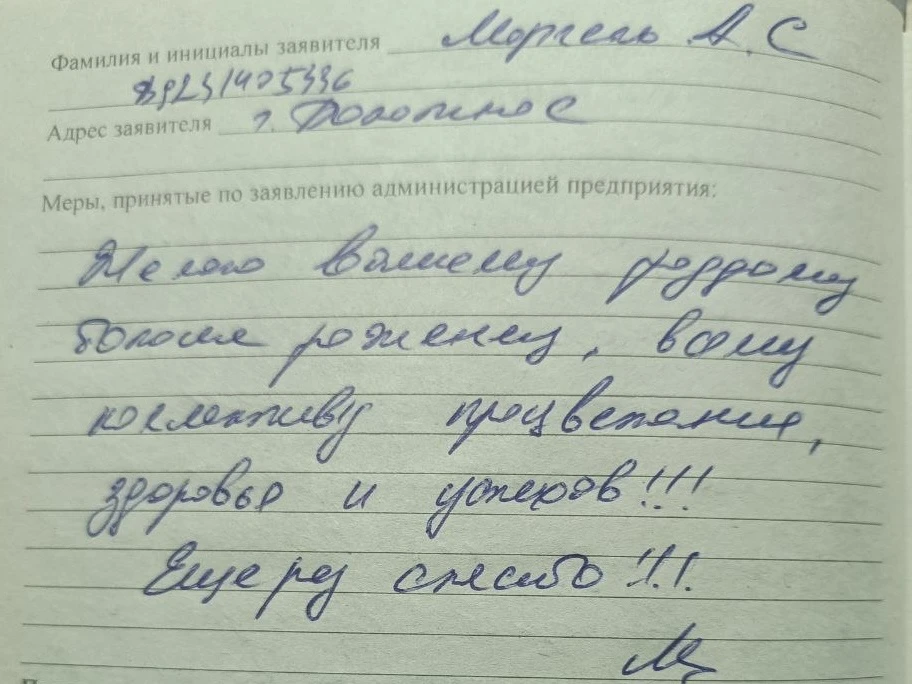 Фамилия и инициалы заявителя Моргель А. С
Адрес заявителя г. Болотное
Меры, принятые по заявлению администрацией предприятия:
Желаю вашему роддому
больше рожениц, всему
коллективу процветания,
здоровья и успехов!!!
Еще раз спасибо!!!